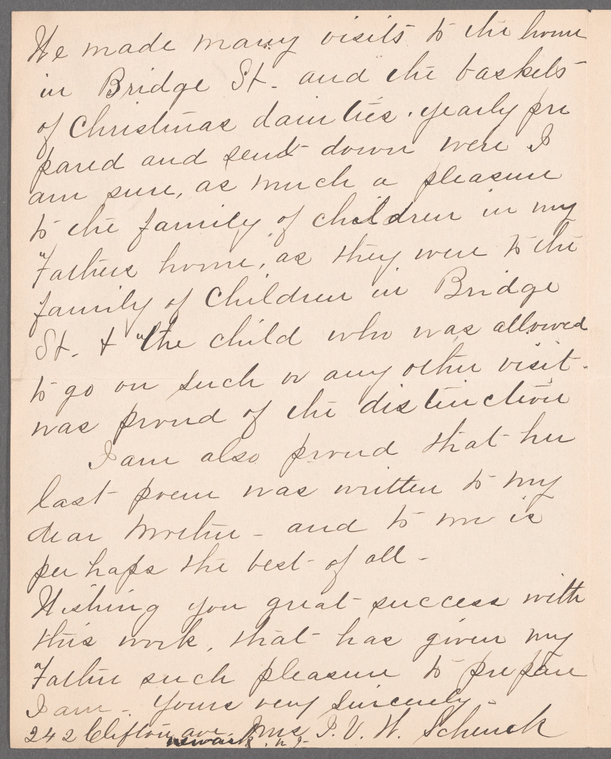 We made many visits to the home
in Bridge St. and the baskets
of Christmas dainties. yearly pre
pared and send down were I
am sure, as much a pleasure
to the family of children in my
Fathers home, as they were to the
family of Children in Bridge
St. + the child who was allowed
to go on such or any other visit.
was proud of the distinction
I am also proud that her
last poem was written to my
dear Mother - and to me is
perhaps the best of all -
Wishing you great success with
this work, that has given my
Father such pleasure to prepare
I am - Yours very sincerely -
242 Clifton ave. Mrs. P. V. W. Schenck
Newark. N. J-